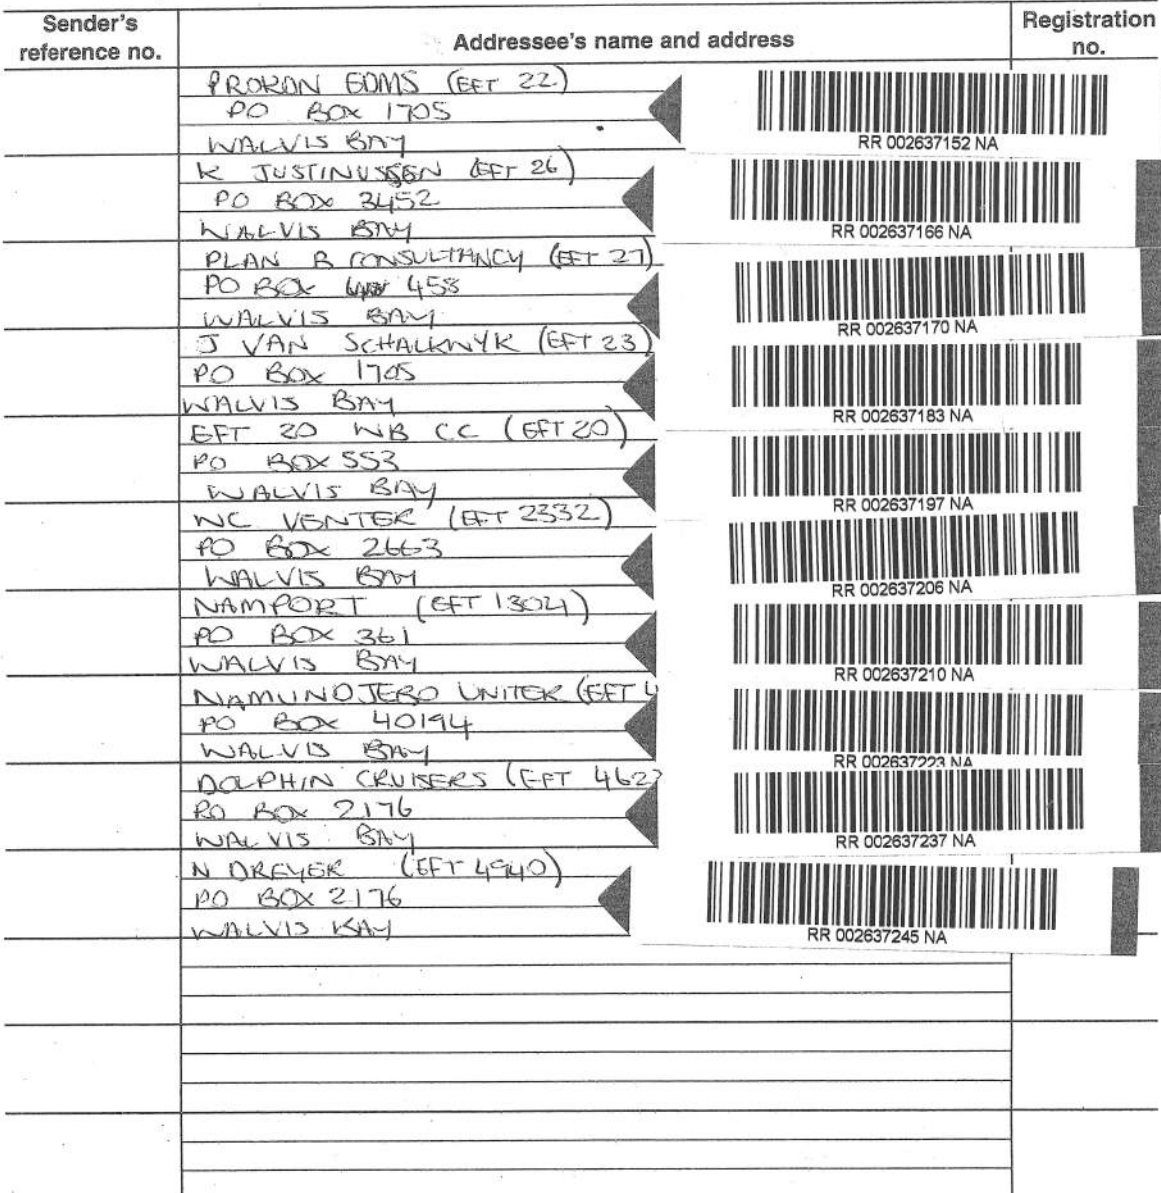 Sender's reference no.
Addressee's name and address
Registration no.
PROKON EDMS (EFT 22)
PO BOX 1705
WALVIS BAY
RR 002637152 NA
K JUSTINUSSEN (EFT 26)
PO BOX 3452
WALVIS BAY
RR 002637166 NA
PLAN B CONSULTANCY (EFT 27)
PO BOX 458
WALVIS BAY
RR 002637170 NA
J VAN SCHALKWYK (EFT 23)
PO BOX 1705
WALVIS BAY
RR 002637183 NA
EFT 20 WB CC (EFT 20)
PO BOX 553
WALVIS BAY
RR 002637197 NA
WC VENTER (EFT 2332)
PO BOX 2663
WALVIS BAY
RR 002637206 NA
NAMPORT (EFT 1304)
PO BOX 361
WALVIS BAY
RR 002637210 NA
NAMUNDJEBO UNITEK (EFT 4
PO BOX 40194
WALVIS BAY
RR 002637223 NA
DOLPHIN CRUISERS (EFT 462
PO BOX 2176
WALVIS BAY
RR 002637237 NA
N DREYER (EFT 4940)
PO BOX 2176
WALVIS BAY
RR 002637245 NA